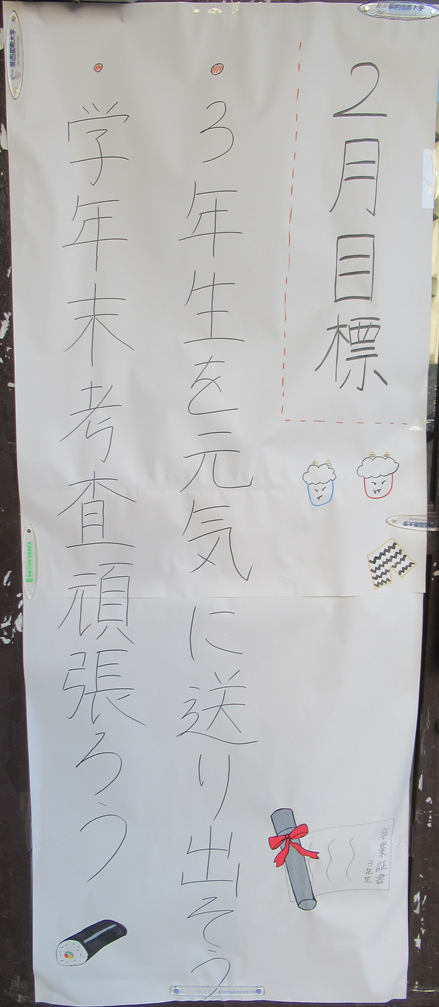 2月目標
・3年生を元気に送り出そう
・学年末考査頑張ろう
卒業証書
3年生